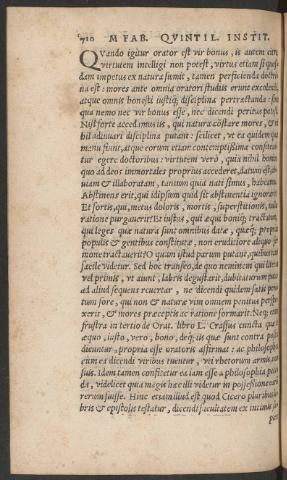 710 M FAB. QVINTIL. INSTIT.
QVando igitur orator est vir bonus, is autem citra
virtutem intelligi non potest, virtus etiam si quos-
dam impetus ex natura sumit, tamen perficienda doctri
na est: mores ante omnia oratori studiis erunt excolendi,
atque omnis honesti iustiq; disciplina pertractanda: sine
qua nemo nec vir bonus esse, nec dicendi peritus potest.
Nisi forte accedimus iis, qui natura constare mores, & ni
hil adiuvari disciplina putant: scilicet, vt ea quidem quæ
manu fiunt, atque eorum etiam contemptissima confitean
tur egere doctoribus: virtutem verò, qua nihil homini
quo ad deos immortales propius accederet, datum est, ob
uiam & illaboratam, tantum quia nati simus, habeamus.
Abstinens erit, qui id ipsum quid sit abstinentia ignorat?
Et fortis, qui metus doloris, mortis, superstitionis, nulla
ratione purgauerit? Et iustus, qui æqui boniq; tractatum,
qui leges quæ natura sunt omnibus datæ, quæq; propriæ
populis & gentibus constitutæ, non eruditiore aliquo ser
mone tractauerit? O quam istud parum putant, quibus tam
facile videtur. Sed hoc transeo, de quo neminem qui literas
vel primis, vt aiunt, labris degustarit, dubitaturum puto:
ad aliud sequens reuertar, ne dicendi quidem satis peri
tum fore, qui non & naturæ vim omnem penitus perspe
xerit, & mores præceptis ac ratione formarit. Neq; enim
frustra in tertio de Orat. libro L. Crassus cuncta quæ de
æquo, iusto, vero, bono, deq; iis quæ sunt contra posita,
dicuntur, propria esse oratoris affirmat: ac philosophos
cum ea dicendi viribus tuentur, vti rhetorum armis, non
suis. Idem tamen confitetur ea iam esse à philosophia peten
da, videlicet quia magis hæc illi videtur in possessione ea
rerum fuisse. Hinc etiam illud est quod Cicero pluribus li
bris & epistolis testatur, dicendi facultatem ex intimis sa